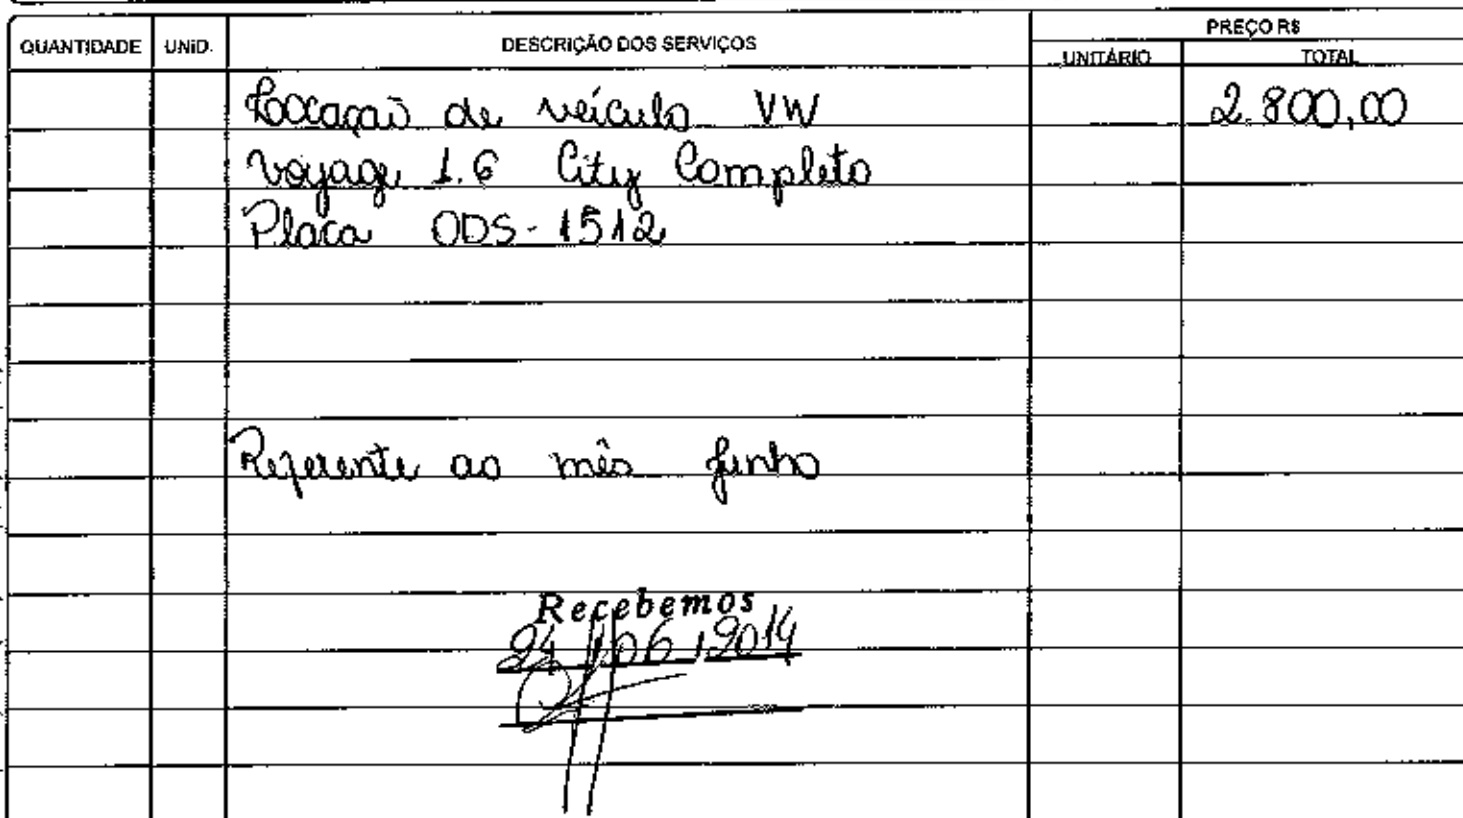 PREÇO R$
QUANTIDADE UNID. DESCRIÇÃO DOS SERVIÇOS UNITÁRIO TOTAL
Locação de veículo VW 2.800,00
Voyage 1.6 City Completo
Placa ODS-1512
Referente ao mês junho
Recebemos
24/06/2014